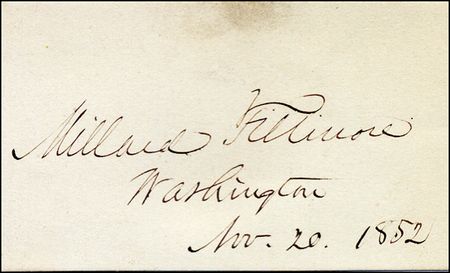 Millard Fillmore
Washington
Nov. 20. 1852